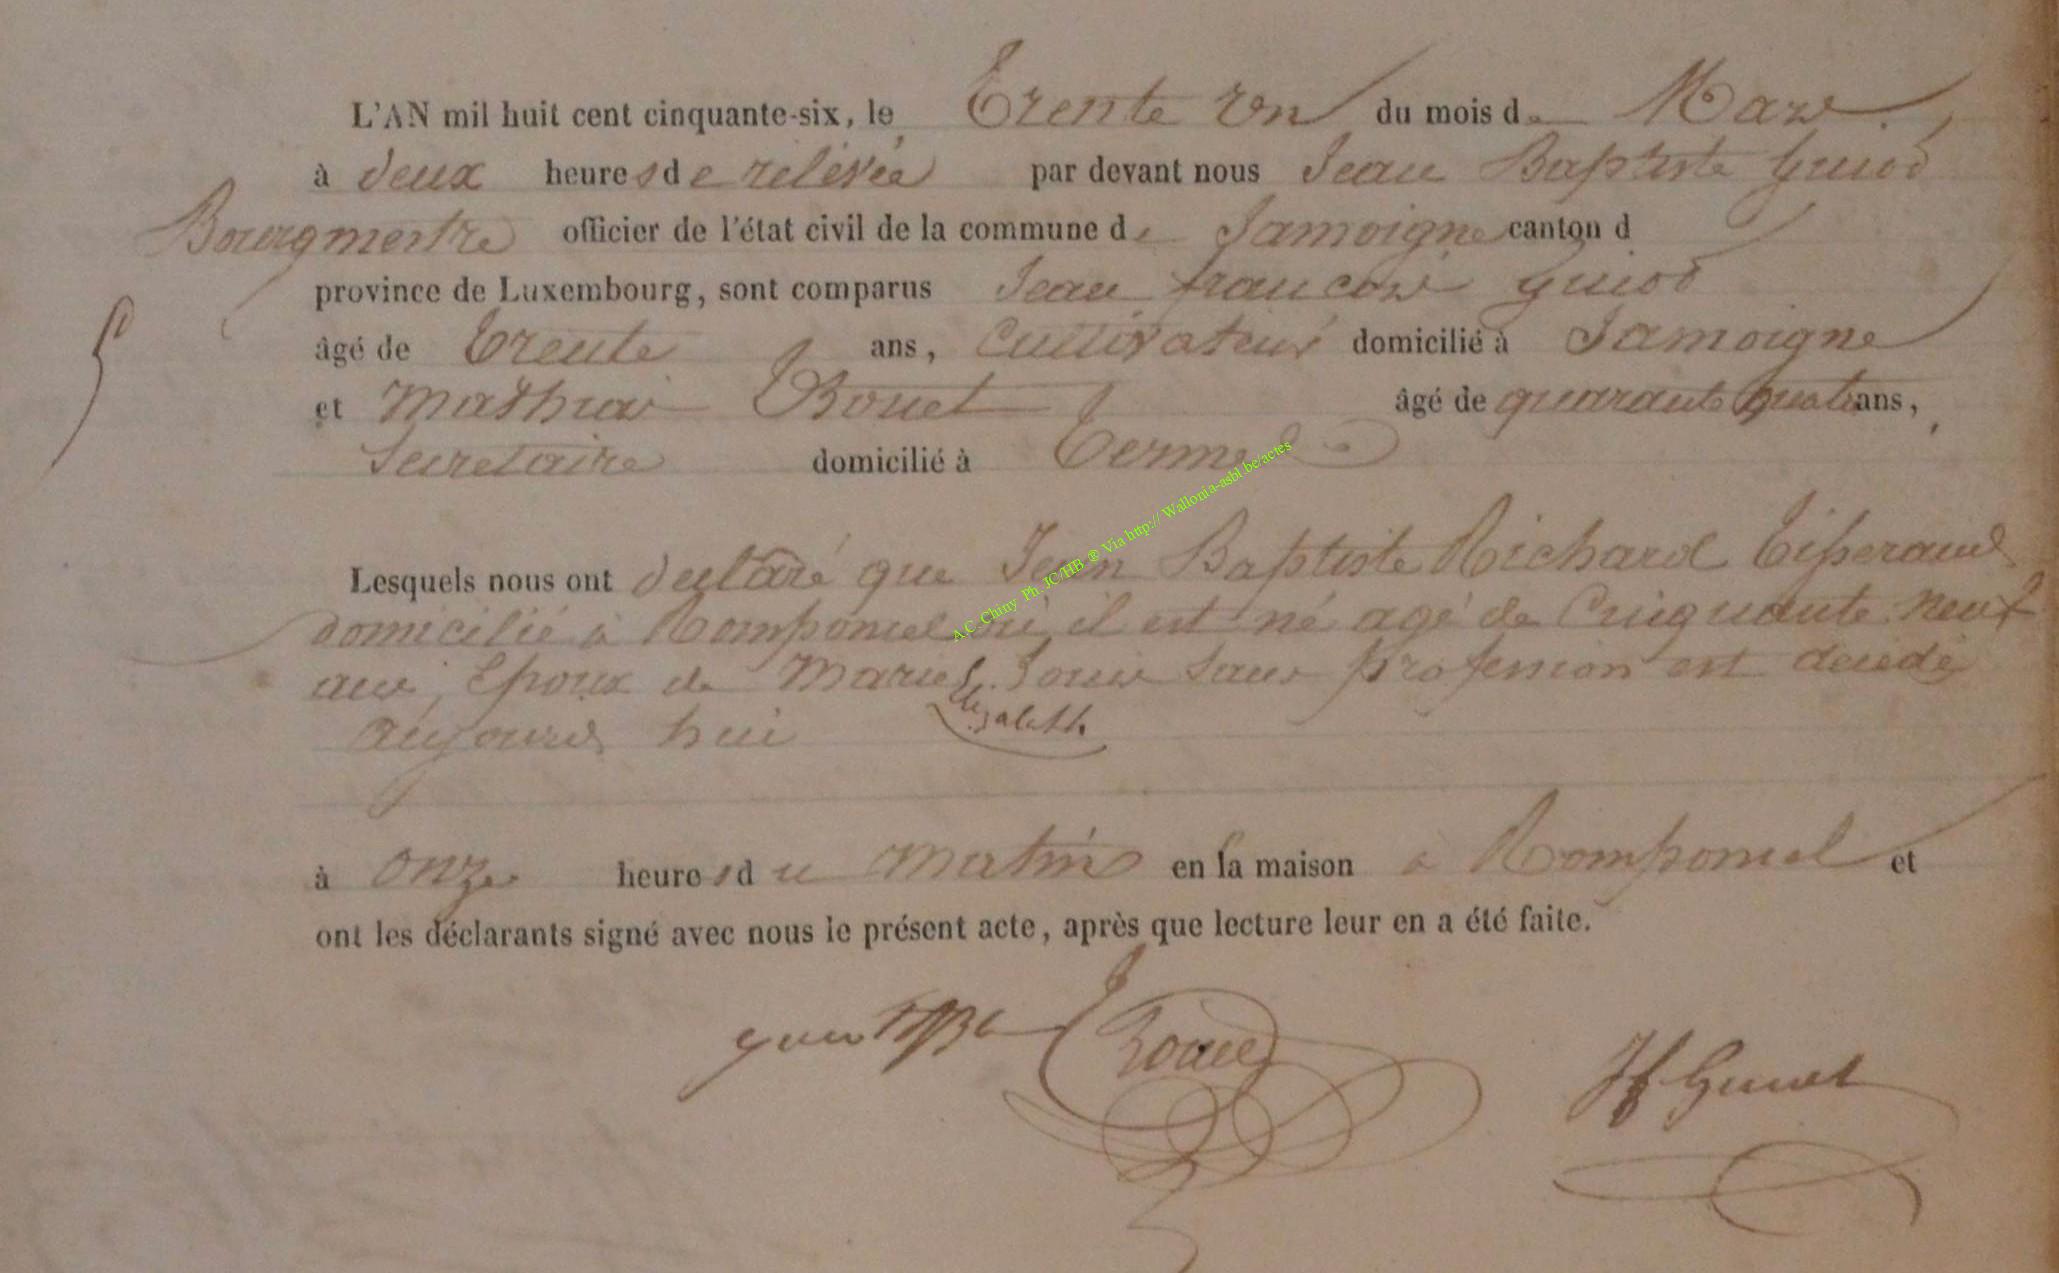 L'AN mil huit cent cinquante-six, le Trente un du mois de Mars
à deux heures de relevée par devant nous Jean Baptiste Guiot
Bourgmestre officier de l'état civil de la commune de Jamoigne canton d
province de Luxembourg, sont comparus Jean françois guiot
âgé de trente ans, Cultivateur domicilié à Jamoigne
et Mathias Bouet âgé de quarante quatre ans,
Secretaire domicilié à Termes
Lesquels nous ont declaré que Jean Baptiste Richard Tisserand
domicilié à Romponcel où il est né agé de Cinquante neuf
ans, Epoux de Marie Elisabeth Louis sans profession est decedé
aujourd hui
à onze heures du matin en la maison à Romponcel et
ont les déclarants signé avec nous le présent acte, après que lecture leur en a été faite.
A.C. Chiny Ph. JC/HB ® Via http:// Wallonia-asbl.be/actes